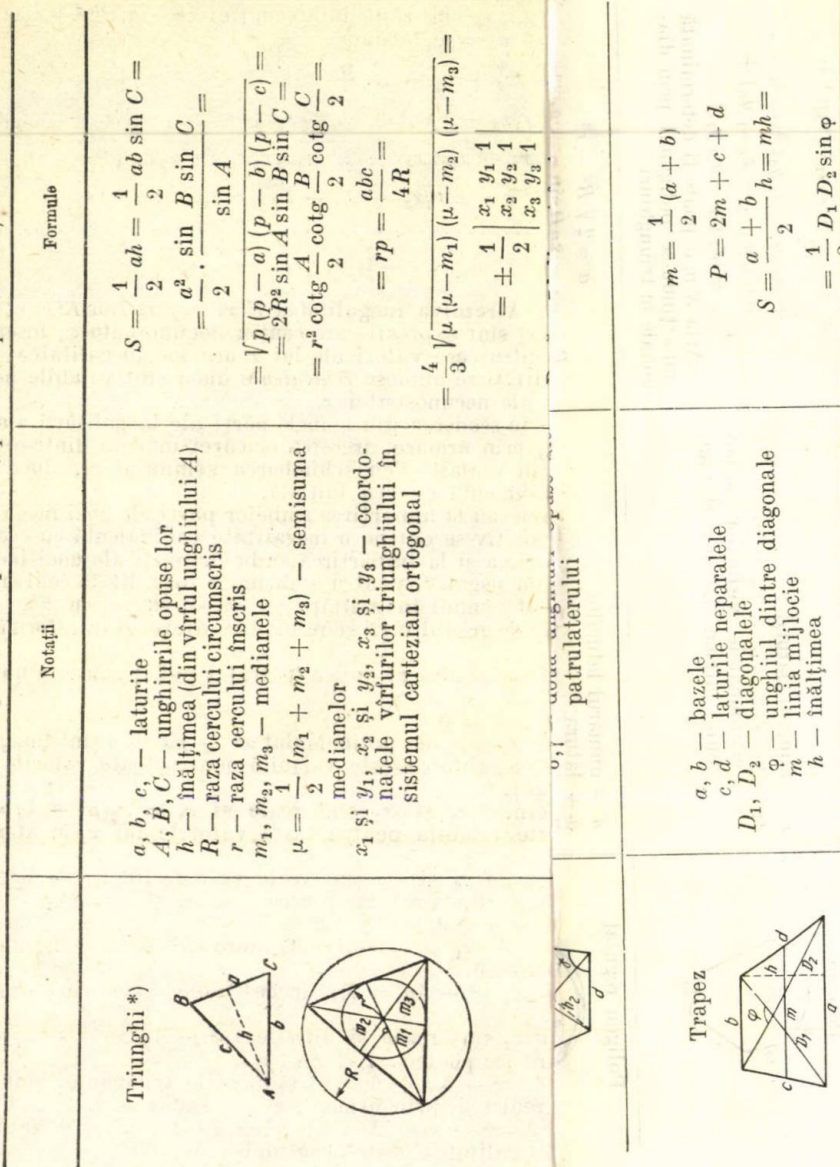 Notații
Formule
Triunghi *)
B
c
a
h
A
b
C
R
r
m₂
m₁
m₃
a, b, c, — laturile
A, B, C — unghiurile opuse lor
h — înălțimea (din vîrful unghiului A)
R — raza cercului circumscris
r — raza cercului înscris
m₁, m₂, m₃ — medianele
μ = 1/2 (m₁ + m₂ + m₃) — semisuma
medianelor
x₁ și y₁, x₂ și y₂, x₃ și y₃ — coordo-
natele vîrfurilor triunghiului în
sistemul cartezian ortogonal
S = 1/2 ah = 1/2 ab sin C =
= a²/2 · sin B sin C / sin A =
= √p(p — a) (p — b) (p — c) =
= 2R² sin A sin B sin C =
= r² cotg A/2 cotg B/2 cotg C/2 =
= rp = abc/4R =
= 4/3 √μ (μ—m₁) (μ—m₂) (μ—m₃) =
= ± 1/2 | x₁ y₁ 1
x₂ y₂ 1
x₃ y₃ 1
două unghiuri opuse
patrulaterului
d
Trapez
b
c
φ
h
d
m
D₁
D₂
a
a, b — bazele
c, d — laturile neparalele
D₁, D₂ — diagonalele
φ — unghiul dintre diagonale
m — linia mijlocie
h — înălțimea
m = 1/2 (a + b)
P = 2m + c + d
S = a + b/2 h = mh =
= 1/2 D₁ D₂ sin φ